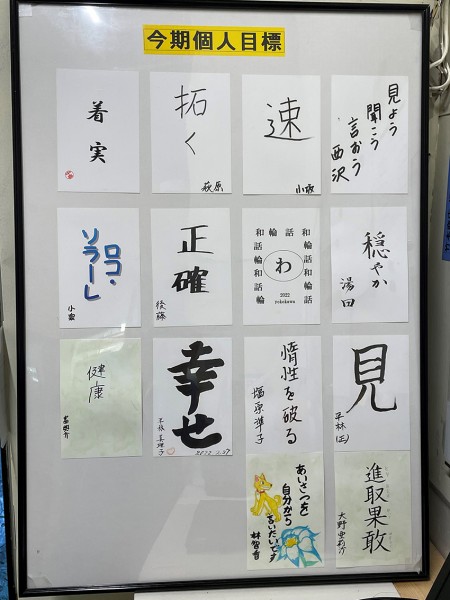 今期個人目標
着実
拓く
萩原
速
小坂
見よう
聞こう
言おう
西沢
ロコ・
ソラーレ
正確
後藤
和 輪 話 和
話 輪
輪 わ 話
和 和
話 輪
輪 2022 話
yokokawa
穏やか
湯田
健康
幸せ
2022.2.27
惰性を破る
塩原準子
見
平林(正)
あいさつを
自分から
言いたいです
林智香
進取果敢